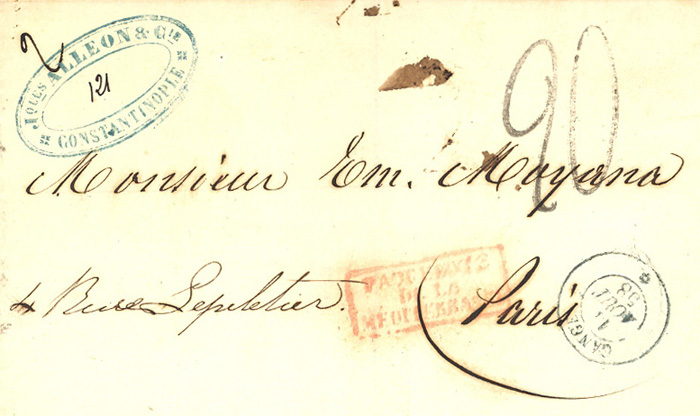 2
JQUES ALLEON & CIE
121
CONSTANTINOPLE
90
Monsieur Em. Moyana
4 Rue Lepeletier.
PAQUEBOTS
DE LA
MÉDITERRANÉE
Paris
11
AOUT
58